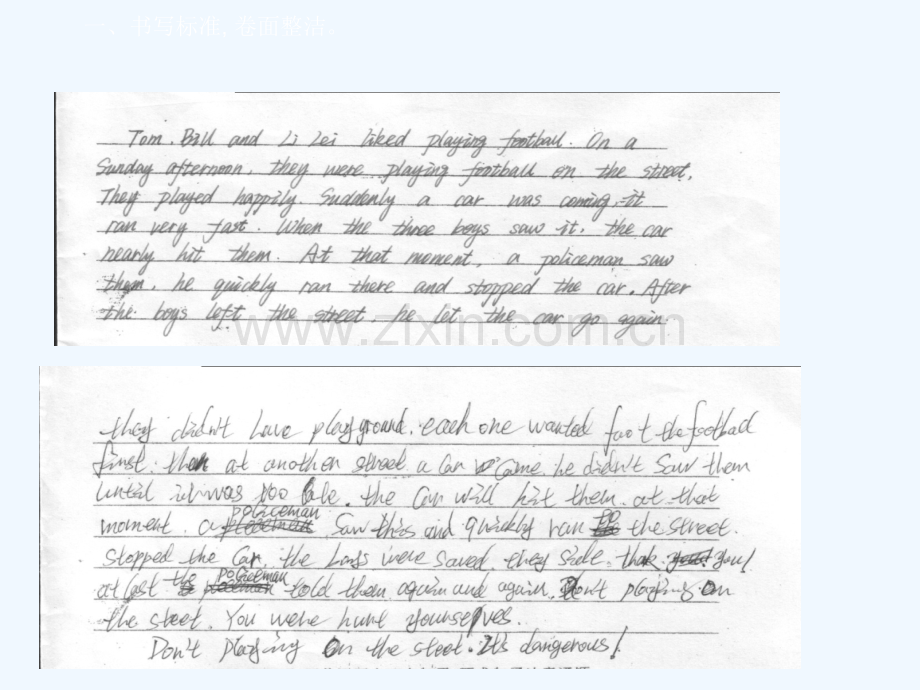 一、书写标准, 卷面整洁。
Tom. Bill and Li Lei liked playing football. On a
Sunday afternoon, they were playing football on the street.
They played happily. Suddenly a car was coming, it
ran very fast. When the three boys saw it, the car
nearly hit them. At that moment, a policeman saw
them, he quickly ran there and stopped the car. After
the boys left the street, he let the car go again.
www.zixin.com.cn
they didn't have playground. each one wanted foot the football
first. then at another street a car came, he didn't saw them
until it was too late. the car will hit them. at that
moment. a policeman saw this and quickly ran to the street.
stopped the car. the boys were saved. they side. thak you!
at last the policeman told them again and again. Don't playing on
the steet. You were hunt yourselves.
Don't playing On the steet. It's dangerous!